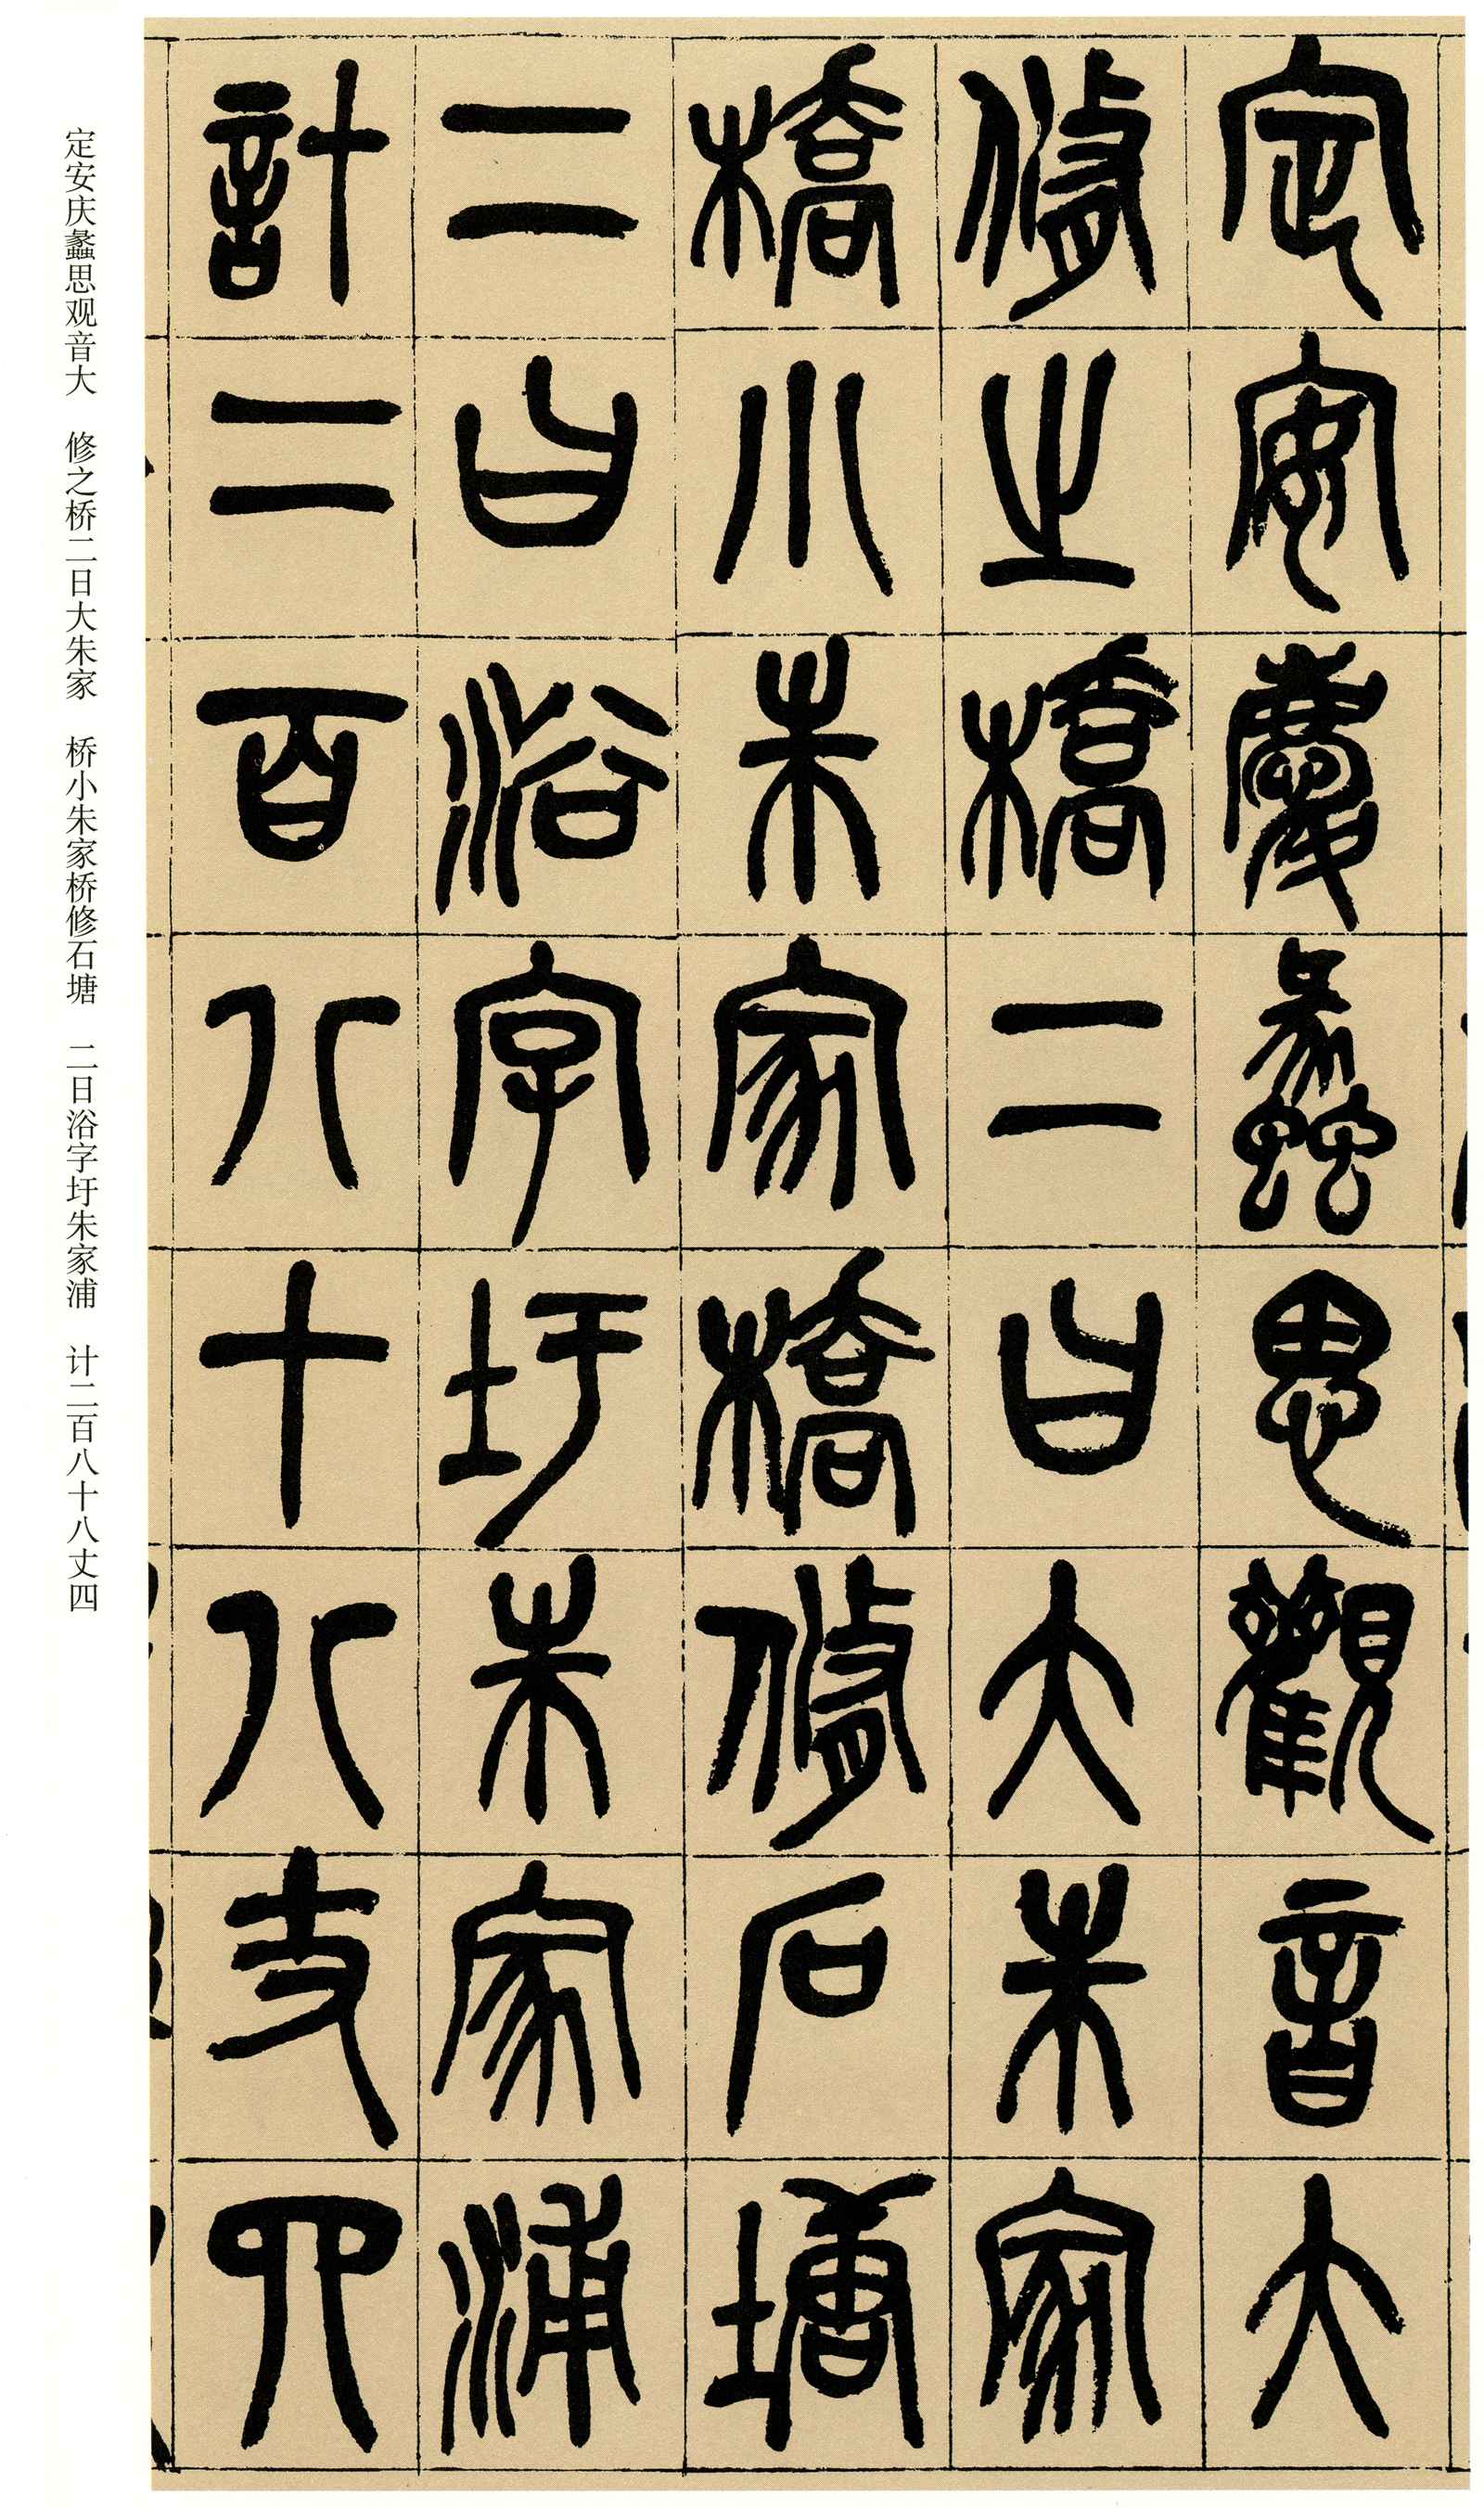 定安慶蠡思觀音大
脩之橋二曰大朱家
橋小朱家橋脩石塘
二曰浴字圩朱家浦
計二百八十八丈四
定安庆蠡思观音大　修之桥二日大朱家　桥小朱家桥修石塘　二日浴字圩朱家浦　计二百八十八丈四